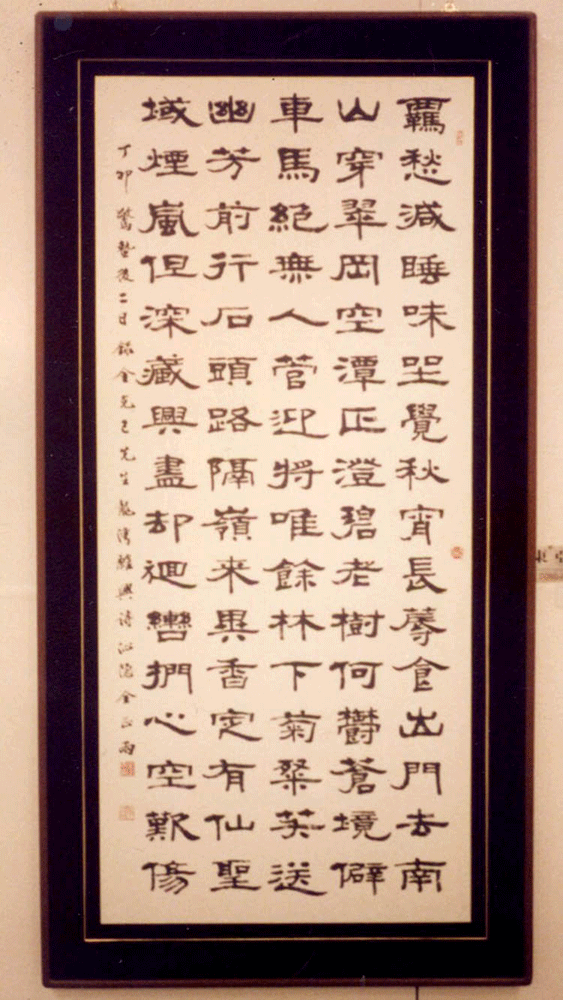 羈愁減睡味坐覺秋宵長蓐食出門去南
山穿翠岡空潭正澄碧老樹何鬱蒼境僻
車馬絕無人管迎將唯餘林下菊粲英送
幽芳前行石頭路隔嶺來異香定有仙聖
域煙嵐但深藏興盡却迴轡捫心空歎傷
丁卯驚蟄後二日錄金克己先生龍灣雜興詩 金正雨